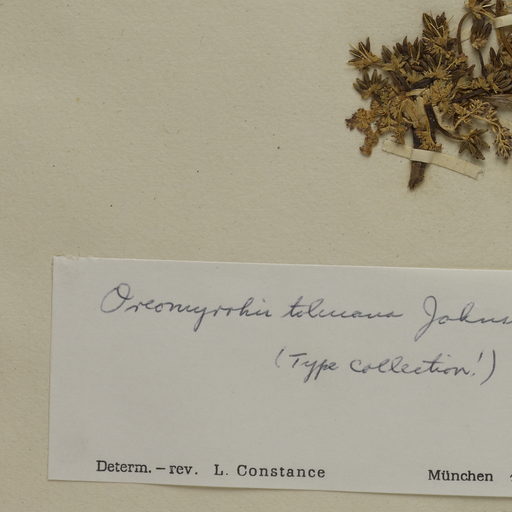 Oreomyrrhis tolucana Johns
(Type collection!)
Determ. – rev. L. Constance München